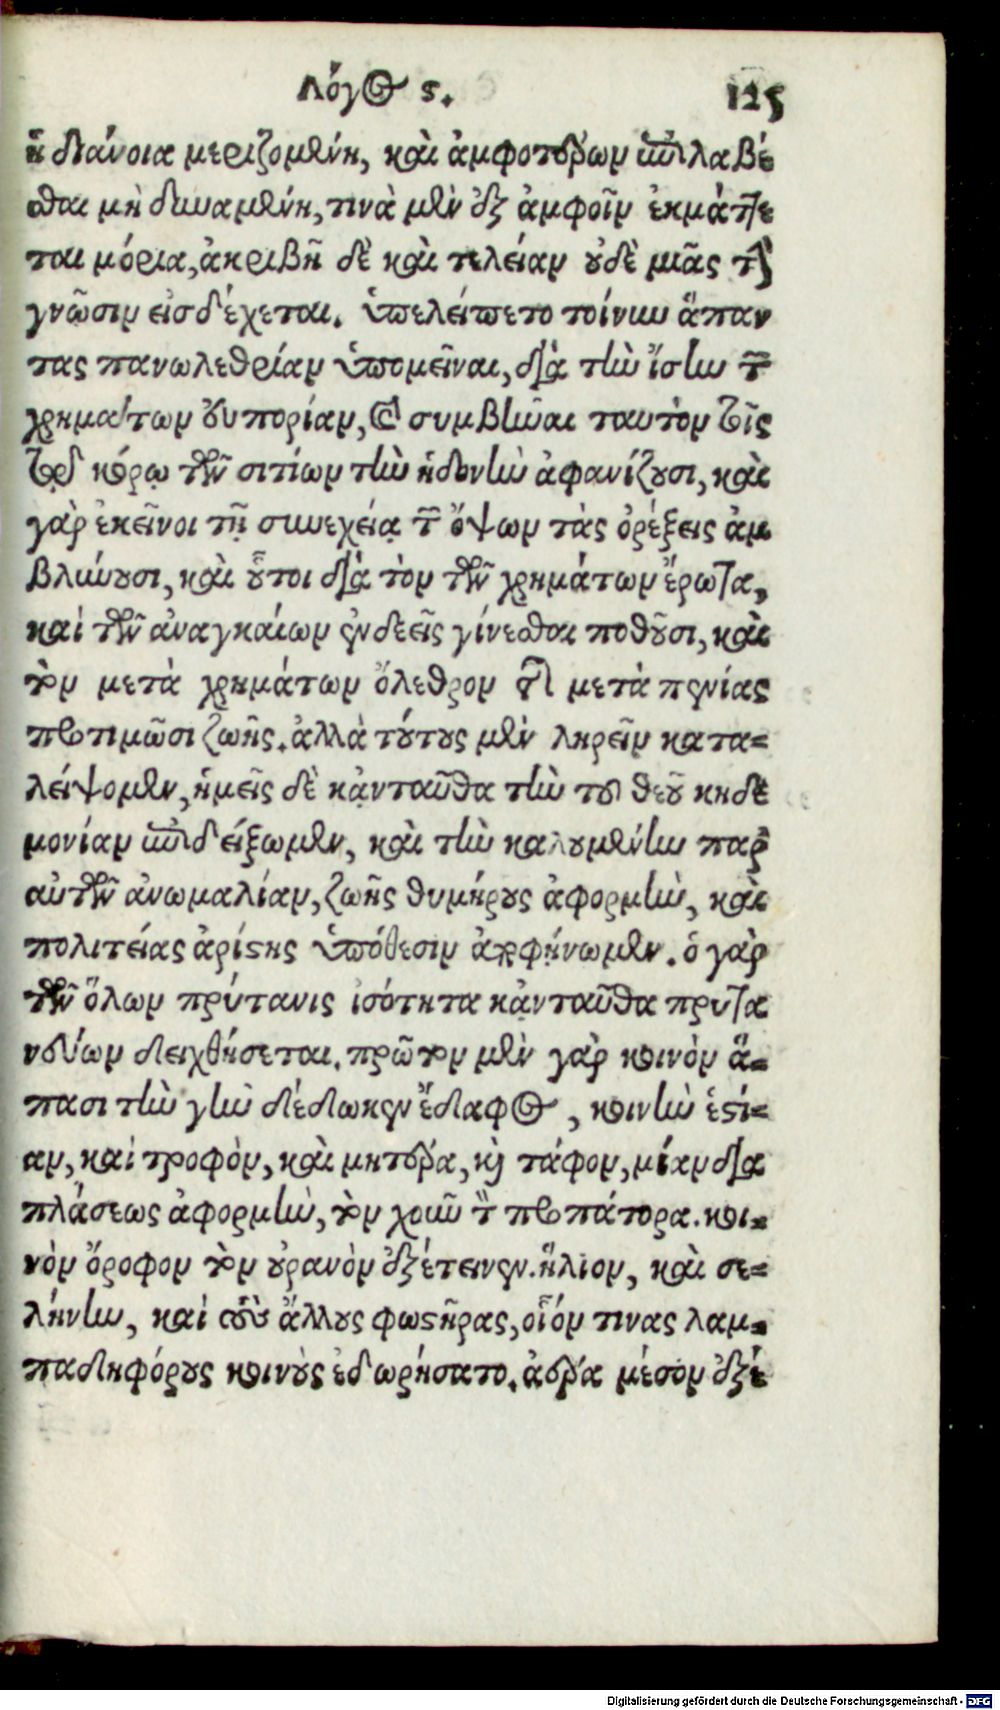 Λόγος ϛ. 125
ἡ διάνοια μεριζομένη, καὶ ἀμφοτέρων ἐπιλαβέ
σθαι μὴ δυναμένη, τινὰ μὲν ἐξ ἀμφοῖν ἐκμάττε
ται μόρια, ἀκριβῆ δὲ καὶ τελείαν οὐδὲ μιᾶς τὴν
γνῶσιν εἰσδέχεται. ὑπελείπετο τοίνυν ἅπαν
τας πανωλεθρίαν ὑπομεῖναι, διὰ τὴν ἴσην τῶν
χρημάτων εὐπορίαν, καὶ συμβῆναι ταυτὸν τοῖς
τῷ κόρῳ τῶν σιτίων τὴν ἡδονὴν ἀφανίζουσι, καὶ
γὰρ ἐκεῖνοι τῇ συνεχείᾳ τῶν ὄψων τὰς ὀρέξεις ἀμ
βλύνουσι, καὶ οὗτοι διὰ τὸν τῶν χρημάτων ἔρωτα,
καὶ τῶν ἀναγκαίων ἐνδεεῖς γίνεσθαι ποθοῦσι, καὶ
τὸν μετὰ χρημάτων ὄλεθρον τῆς μετὰ πενίας
προτιμῶσι ζωῆς. ἀλλὰ τούτους μὲν ληρεῖν κατα=
λείψομεν, ἡμεῖς δὲ κἀνταῦθα τὴν τοῦ θεοῦ κηδε
μονίαν ἐπιδείξωμεν, καὶ τὴν καλουμένην παρ
αὐτῶν ἀνωμαλίαν, ζωῆς θυμήρους ἀφορμὴν, καὶ
πολιτείας ἀρίστης ὑπόθεσιν ἀποφήνωμεν. ὁ γὰρ
τῶν ὅλων πρύτανις ἰσότητα κἀνταῦθα πρυτα
νεύων δειχθήσεται. πρῶτον μὲν γὰρ κοινὸν ἅ=
πασι τὴν γῆν δέδωκεν ἔδαφος, κοινὴν ἑστί=
αν, καὶ τροφὸν, καὶ μητέρα, καὶ τάφον, μίαν δια
πλάσεως ἀφορμὴν, τὸν χοῦν τὸν προπάτορα. κοι=
νὸν ὄροφον τὸν οὐρανὸν ἐξέτεινεν. ἥλιον, καὶ σε=
λήνην, καὶ τοὺς ἄλλους φωστῆρας, οἷόν τινας λαμ=
παδηφόρους κοινοὺς ἐδωρήσατο. ἀέρα μέσον ἐξέ
Digitalisierung gefördert durch die Deutsche Forschungsgemeinschaft - DFG